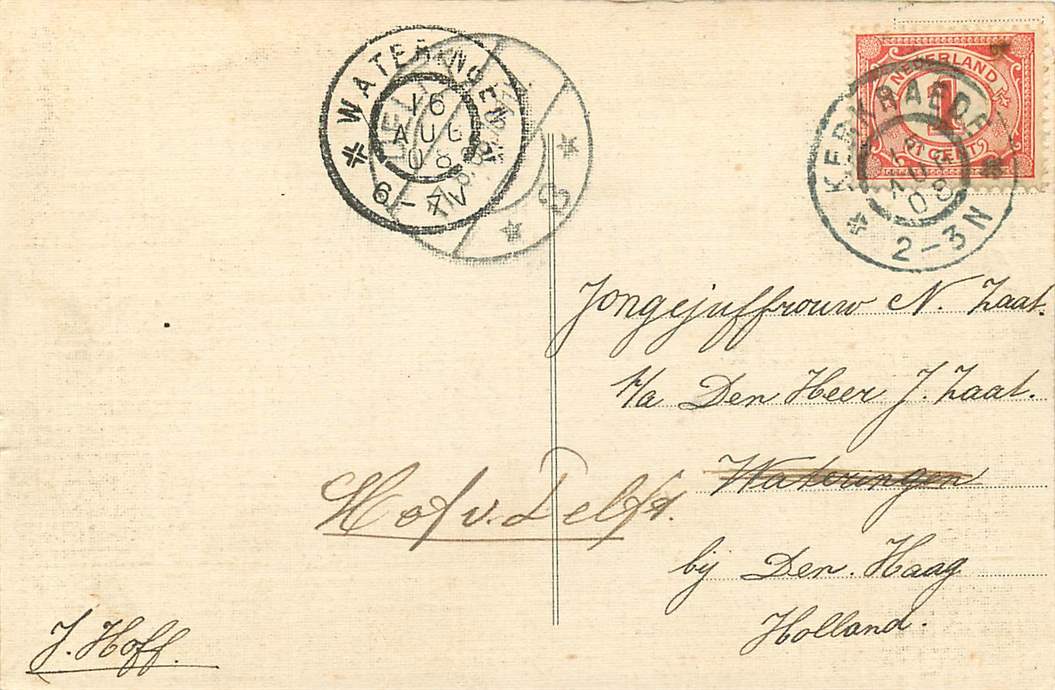 WATERINGEN
16
AUG
08
6-7V
DELFT
NEDERLAND
1
CENT
KERKRADE
AUG
08
2-3N
Jongejuffrouw N. Zaat.
t/a Den Heer J. Zaat.
Wateringen
Hof v. Delft.
bij Den Haag
Holland.
J. Hoff.